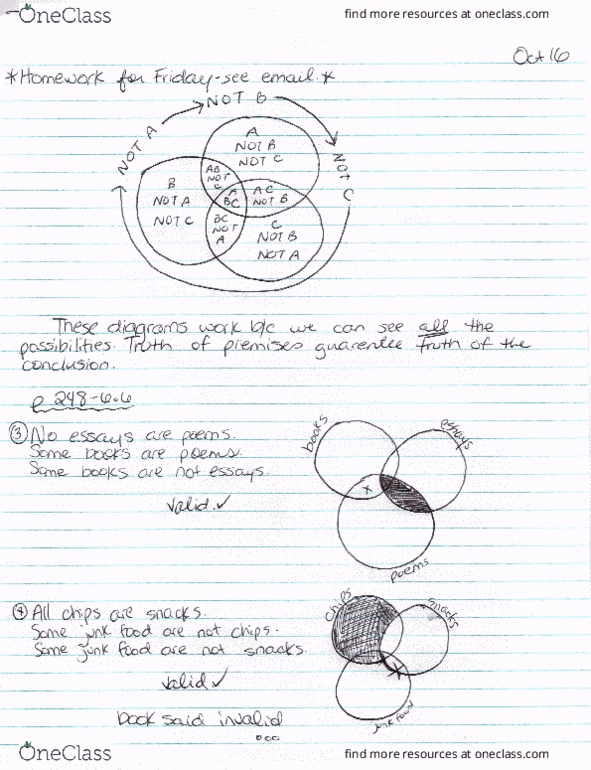 OneClass
find more resources at oneclass.com
Oct 16
*Homework for Friday-see email.*
NOT A
NOT B
NOT C
A
NOT B
NOT C
B
NOT A
NOT C
AB
NOT
C
A
BC
AC
NOT B
BC
NOT
A
C
NOT B
NOT A
These diagrams work b/c we can see all the
possibilities. Truth of premises guarentee truth of the
conclusion.
p 248-6.6
③ No essays are poems.
Some books are poems.
Some books are not essays.
valid.✓
books
essays
x
poems
④ All chips are snacks.
Some junk food are not chips.
Some junk food are not snacks.
valid✓
book said invalid
...
chips
snacks
x
junk food
OneClass
find more resources at oneclass.com